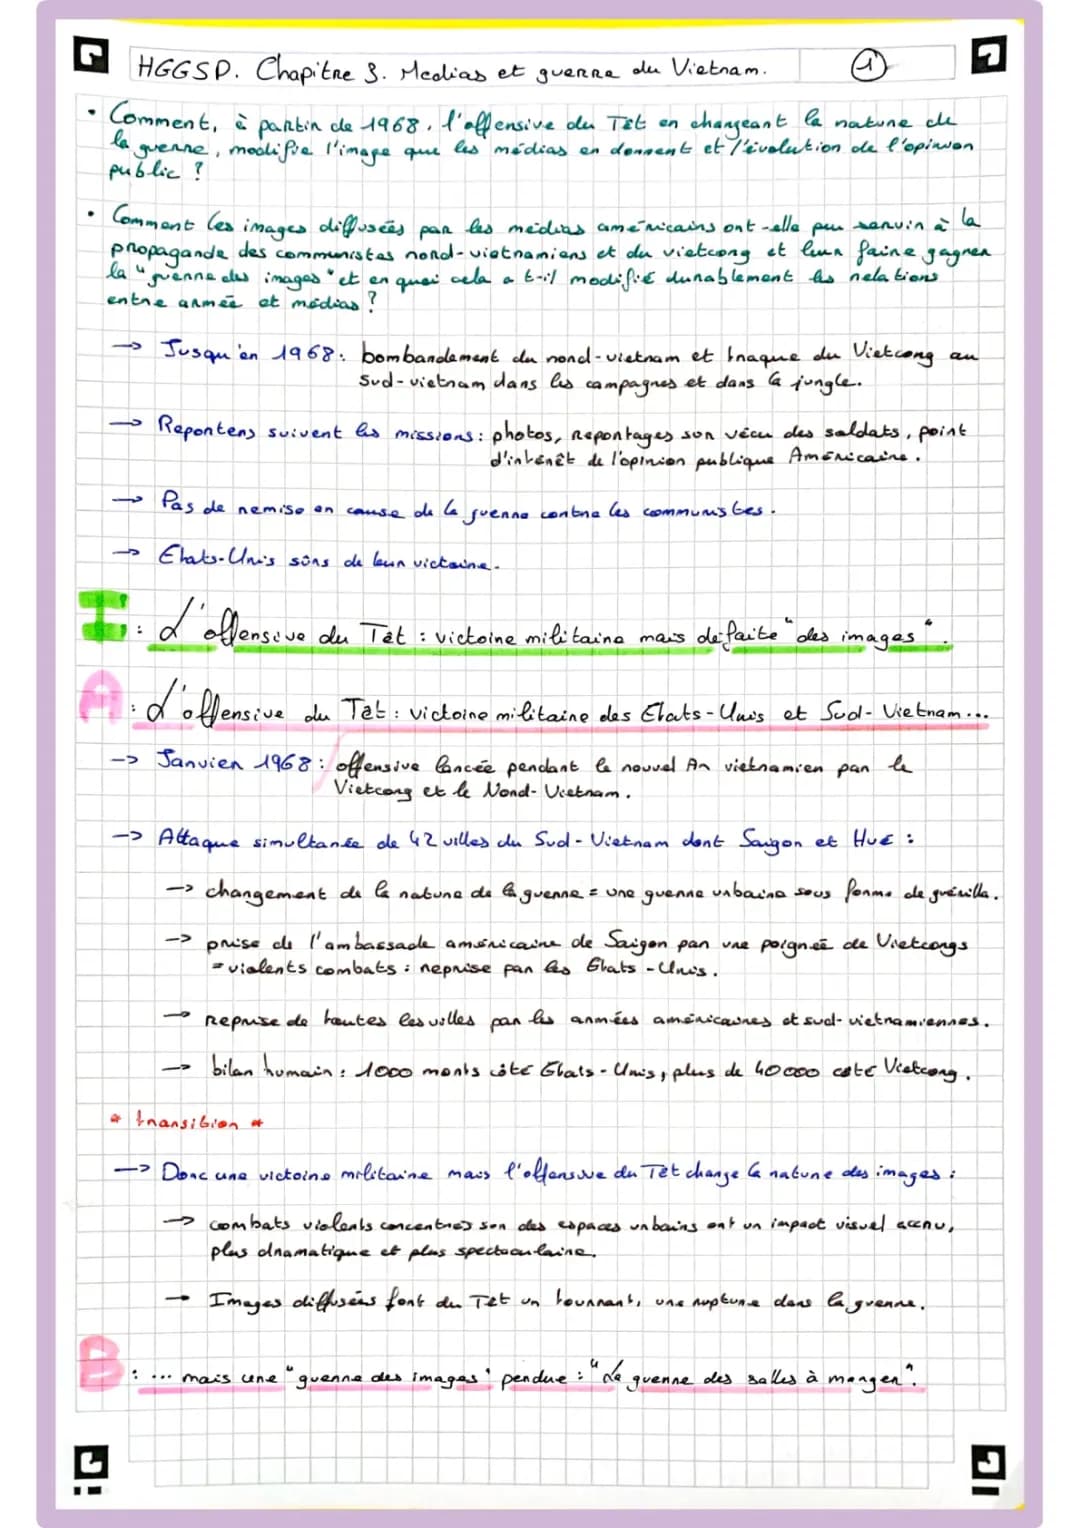 HGGSP. Chapitre 3. Medias et guerre du Vietnam.
1
• Comment, à partir de 1968, l'offensive du Têt en changeant la nature de
la guerre, modifie l'image que les médias en donnent et l'évolution de l'opinion
public ?
• Comment les images diffusées par les médias américains ont-elle pu servir à la
propagande des communistes nord-vietnamiens et du vietcong et leur faire gagner
la "guerre des images" et en quoi cela a t-il modifié durablement les relations
entre armée et médias ?
→ Jusqu'en 1968: bombardement du nord-vietnam et traque du Vietcong au
Sud-vietnam dans les campagnes et dans la jungle.
→ Reporters suivent les missions: photos, reportages sur vécu des soldats, point
d'intérêt de l'opinion publique Américaine.
→ Pas de remise en cause de la guerre contre les communistes.
→ Etats-Unis sûrs de leur victoire.
I : L'offensive du Têt : victoire militaire mais défaite "des images".
A : L'offensive du Têt : victoire militaire des Etats-Unis et Sud-Vietnam...
→ Janvier 1968 : offensive lancée pendant le nouvel An vietnamien par le
Vietcong et le Nord-Vietnam.
→ Attaque simultanée de 42 villes du Sud-Vietnam dont Saigon et Hué :
→ changement de la nature de la guerre = une guerre urbaine sous forme de guérilla.
→ prise de l'ambassade américaine de Saigon par une poignée de Vietcongs
= violents combats : reprise par les Etats-Unis.
→ Reprise de toutes les villes par les armées américaines et sud-vietnamiennes.
→ bilan humain : 1000 morts côté Etats-Unis, plus de 40 000 coté Vietcong.
* transition *
→ Donc une victoire militaire mais l'offensive du Têt change la nature des images :
→ combats violents concentrés sur des espaces urbains ont un impact visuel accru,
plus dramatique et plus spectaculaire.
→ Images diffusées font du Têt un tournant, une rupture dans la guerre.
B : ... mais une "guerre des images" perdue : "La guerre des salles à manger".